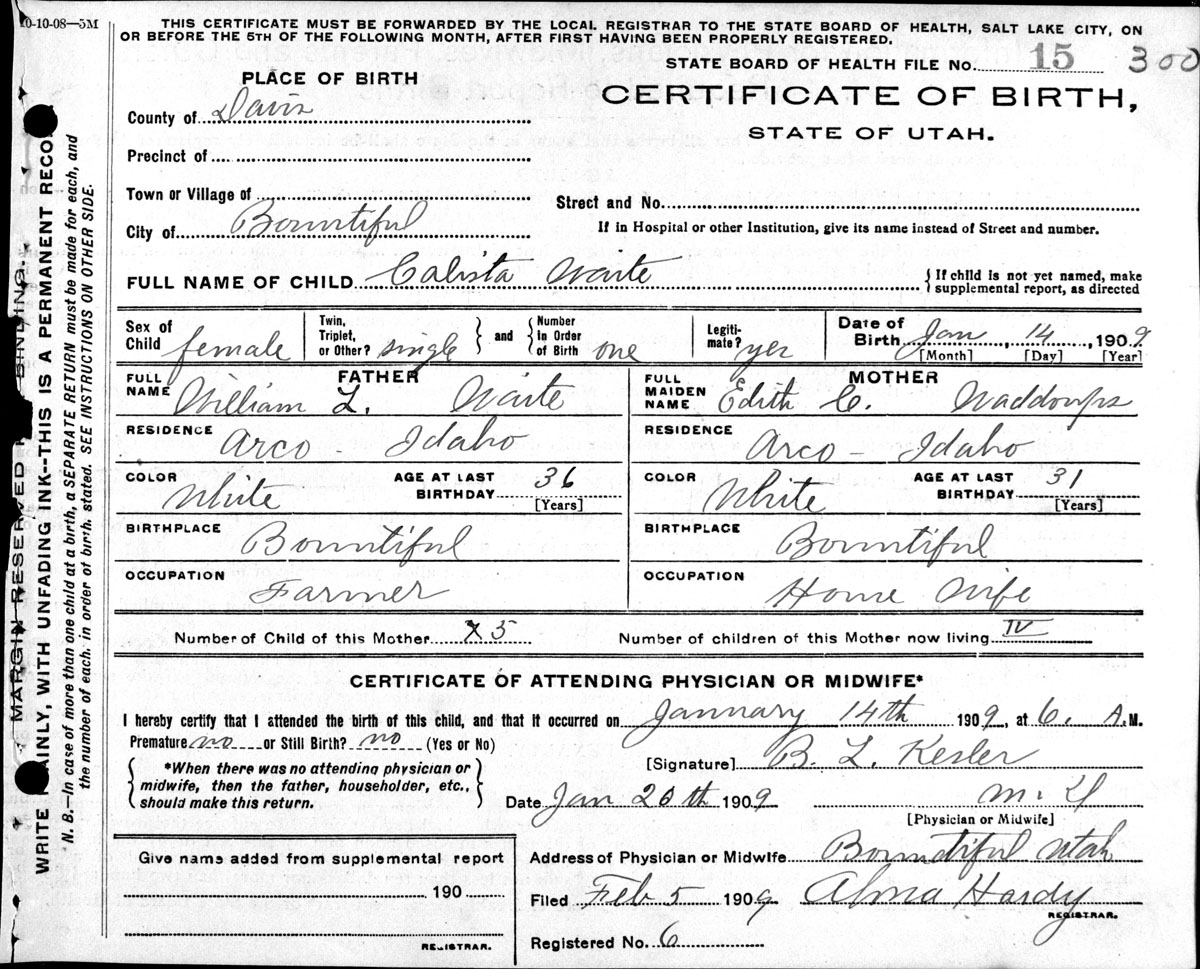 10-10-08—5M
THIS CERTIFICATE MUST BE FORWARDED BY THE LOCAL REGISTRAR TO THE STATE BOARD OF HEALTH, SALT LAKE CITY, ON
OR BEFORE THE 5TH OF THE FOLLOWING MONTH, AFTER FIRST HAVING BEEN PROPERLY REGISTERED.
STATE BOARD OF HEALTH FILE No. 15 300
PLACE OF BIRTH
CERTIFICATE OF BIRTH,
STATE OF UTAH.
County of Davis
Precinct of
Town or Village of
Street and No.
City of Bountiful
If in Hospital or other Institution, give its name instead of Street and number.
FULL NAME OF CHILD Calista Waite
{If child is not yet named, make
supplemental report, as directed
Sex of Child female
Twin, Triplet, or Other? single } and { Number In Order of Birth one
Legitimate? yes
Date of Birth Jan, 14, 1909.
[Month] [Day] [Year]
FATHER
FULL NAME William L. Waite
MOTHER
FULL MAIDEN NAME Edith C. Waddoups
RESIDENCE Arco - Idaho
RESIDENCE Arco - Idaho
COLOR White AGE AT LAST BIRTHDAY 36 [Years]
COLOR White AGE AT LAST BIRTHDAY 31 [Years]
BIRTHPLACE Bountiful
BIRTHPLACE Bountiful
OCCUPATION Farmer
OCCUPATION House Wife
Number of Child of this Mother 5
Number of children of this Mother now living IV
CERTIFICATE OF ATTENDING PHYSICIAN OR MIDWIFE*
I hereby certify that I attended the birth of this child, and that it occurred on January 14th 1909, at 6. A.M.
Premature no or Still Birth? no (Yes or No)
{ *When there was no attending physician or
midwife, then the father, householder, etc.,
should make this return. }
[Signature] B. L. Kesler
Date Jan 20th 1909 M.D
[Physician or Midwife]
Give name added from supplemental report
190
REGISTRAR.
Address of Physician or Midwife Bountiful Utah
Filed Feb 5 1909 Alma Hardy
REGISTRAR.
Registered No. 6
MARGIN RESERVED BINDING.
WRITE PLAINLY, WITH UNFADING INK--THIS IS A PERMANENT RECO
N. B.—In case of more than one child at a birth, a SEPARATE RETURN must be made for each, and
the number of each, in order of birth, stated. SEE INSTRUCTIONS ON OTHER SIDE.